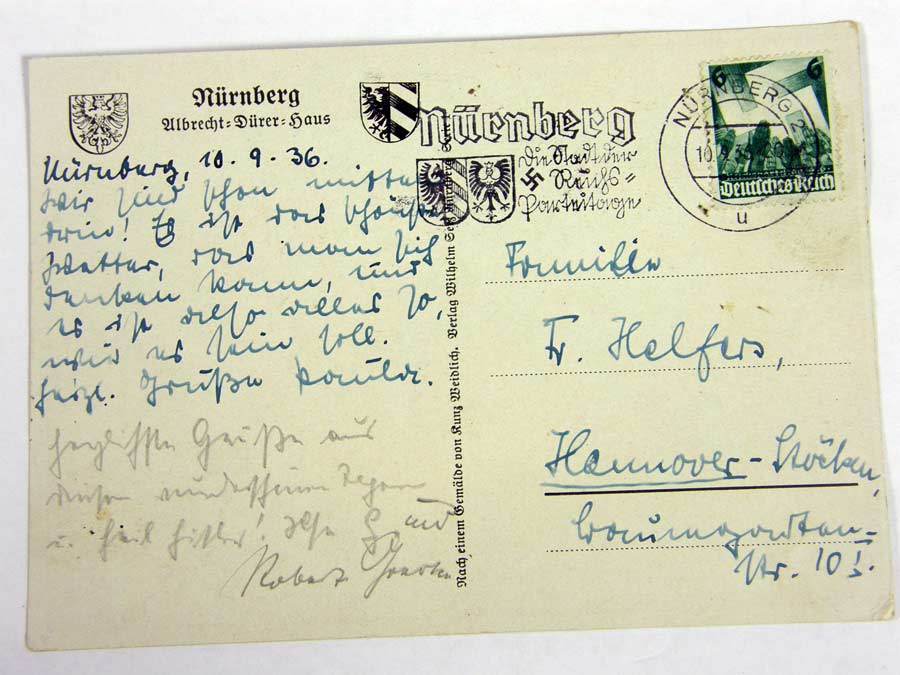 Nürnberg
Albrecht-Dürer-Haus
Nürnberg
Die Stadt der
Reichs-
parteitage
NÜRNBERG 2
10.9.36
u
6 6
Deutsches Reich
Nürnberg, 10. 9. 36.
Wir sind schon mitten
drin! Es ist das schönste
Wetter, das man sich
denken kann, und
es ist alles so,
wie es sein soll.
Herzl. Grüße
Herzlichste Grüße aus
diesen wunderschönen Tagen
u. Heil Hitler! Ilse und
Robert
Nach einem Gemälde von Kunz Weidlich. Verlag Wilhelm
Familie
Fr. Helfers,
Hannover-Stöcken,
Baumgarten-
str. 10 I.